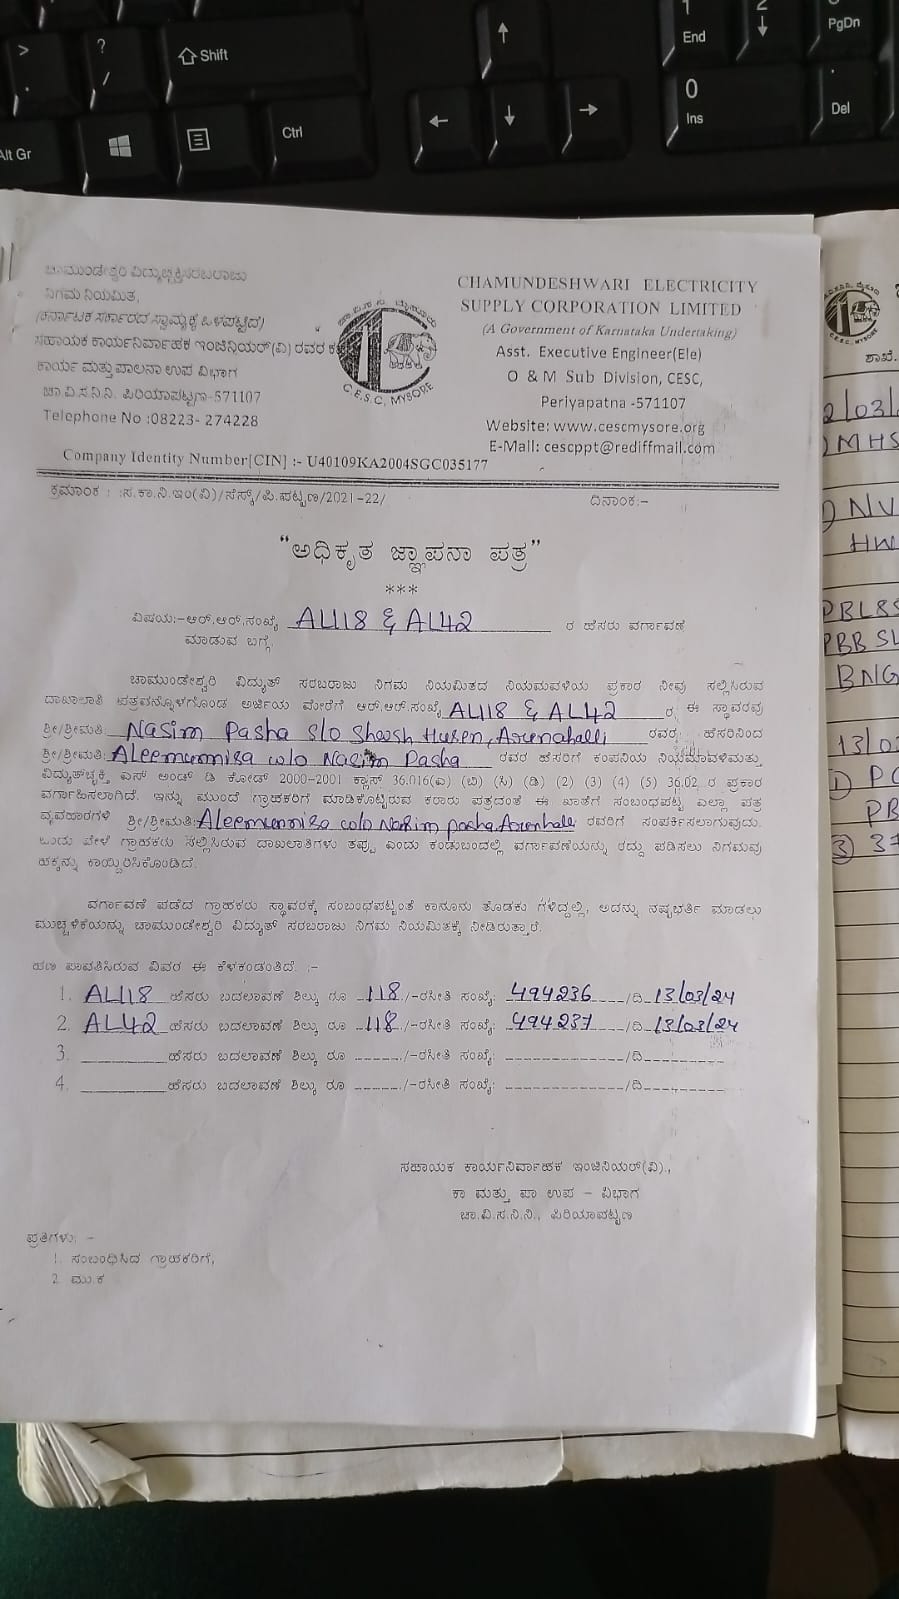 >
?
/
Shift
Alt Gr
Ctrl
1
End
2
PgDn
0
Ins
Del
ಚಾಮುಂಡೇಶ್ವರಿ ವಿದ್ಯುಚ್ಛಕ್ತಿ ಸರಬರಾಜು
ನಿಗಮ ನಿಯಮಿತ,
(ಕರ್ನಾಟಕ ಸರ್ಕಾರದ ಸ್ವಾಮ್ಯಕ್ಕೆ ಒಳಪಟ್ಟಿದೆ)
ಸಹಾಯಕ ಕಾರ್ಯನಿರ್ವಾಹಕ ಇಂಜಿನಿಯರ್(ವಿ) ರವರ ಕ
ಕಾರ್ಯ ಮತ್ತು ಪಾಲನಾ ಉಪ ವಿಭಾಗ
ಚಾ.ವಿ.ಸ.ನಿ.ನಿ. ಪಿರಿಯಾಪಟ್ಟಣ-571107
Telephone No :08223- 274228
C.E.S.C, MYSORE
CHAMUNDESHWARI ELECTRICITY
SUPPLY CORPORATION LIMITED
(A Government of Karnataka Undertaking)
Asst. Executive Engineer(Ele)
O & M Sub Division, CESC,
Periyapatna -571107
Website: www.cescmysore.org
E-Mail: cescppt@rediffmail.com
Company Identity Number[CIN] :- U40109KA2004SGC035177
ಕ್ರಮಾಂಕ : :ಸ.ಕಾ.ನಿ.ಇಂ(ವಿ)/ಸೆಸ್ಕ್/ಪಿ.ಪಟ್ಟಣ/2021-22/ ದಿನಾಂಕ:-
“ಅಧಿಕೃತ ಜ್ಞಾಪನಾ ಪತ್ರ”
***
ವಿಷಯ:-ಆರ್.ಆರ್.ಸಂಖ್ಯೆ AL118 & AL42 ರ ಹೆಸರು ವರ್ಗಾವಣೆ
ಮಾಡುವ ಬಗ್ಗೆ.
ಚಾಮುಂಡೇಶ್ವರಿ ವಿದ್ಯುತ್ ಸರಬರಾಜು ನಿಗಮ ನಿಯಮಿತದ ನಿಯಮವಳಿಯ ಪ್ರಕಾರ ನೀವು ಸಲ್ಲಿಸಿರುವ
ದಾಖಲಾತಿ ಪತ್ರವನ್ನೊಳಗೊಂಡ ಅರ್ಜಿಯ ಮೇರೆಗೆ ಆರ್.ಆರ್.ಸಂಖ್ಯೆ AL118 & AL42 ರ ಈ ಸ್ಥಾವರವು
ಶ್ರೀ/ಶ್ರೀಮತಿ: Nasim Pasha s/o Husen, ರವರ ಹೆಸರಿನಿಂದ
ಶ್ರೀ/ಶ್ರೀಮತಿ: Aleemunnisa w/o Nasim Pasha ರವರ ಹೆಸರಿಗೆ ಕಂಪನಿಯ ನಿಯಮಾವಳಿಮತ್ತು
ವಿದ್ಯುಚ್ಛಕ್ತಿ ಎಸ್ ಅಂಡ್ ಡಿ ಕೋಡ್ 2000-2001 ಕ್ಲಾಸ್ 36.01ಎ(ಎ) (ಬಿ) (ಸಿ) (ಡಿ) (2) (3) (4) (5) 36.02 ರ ಪ್ರಕಾರ
ವರ್ಗಾಹಿಸಲಾಗಿದೆ. ಇನ್ನು ಮುಂದೆ ಗ್ರಾಹಕರಿಗೆ ಮಾಡಿಕೊಟ್ಟಿರುವ ಕರಾರು ಪತ್ರದಂತೆ ಈ ಖಾತೆಗೆ ಸಂಬಂಧಪಟ್ಟ ಎಲ್ಲಾ ಪತ್ರ
ವ್ಯವಹಾರಗಳಿ ಶ್ರೀ/ಶ್ರೀಮತಿ: Aleemunnisa w/o Nasim pasha ರವರಿಗೆ ಸಂಪರ್ಕಿಸಲಾಗುವುದು.
ಒಂದು ವೇಳೆ ಗ್ರಾಹಕರು ಸಲ್ಲಿಸಿರುವ ದಾಖಲಾತಿಗಳು ತಪ್ಪು ಎಂದು ಕಂಡುಬಂದಲ್ಲಿ ವರ್ಗಾವಣೆಯನ್ನು ರದ್ದು ಪಡಿಸಲು ನಿಗಮವು
ಹಕ್ಕನ್ನು ಕಾಯ್ದಿರಿಸಿಕೊಂಡಿದೆ.
ವರ್ಗಾವಣೆ ಪಡೆದ ಗ್ರಾಹಕರು ಸ್ಥಾವರಕ್ಕೆ ಸಂಬಂಧಪಟ್ಟಂತೆ ಕಾನೂನು ತೊಡಕು ಗಳಿದ್ದಲ್ಲಿ, ಅದನ್ನು ನಷ್ಟಭರ್ತಿ ಮಾಡಲು
ಮುಚ್ಚಳಿಕೆಯನ್ನು ಚಾಮುಂಡೇಶ್ವರಿ ವಿದ್ಯುತ್ ಸರಬರಾಜು ನಿಗಮ ನಿಯಮಿತಕ್ಕೆ ನೀಡಿರುತ್ತಾರೆ.
ಹಣ ಪಾವತಿಸಿರುವ ವಿವರ ಈ ಕೆಳಕಂಡಂತಿದೆ. :-
1. AL118 ಹೆಸರು ಬದಲಾವಣೆ ಶಿಲ್ಕು ರೂ 118/-ರಸೀತಿ ಸಂಖ್ಯೆ: 494236 /ದಿ 13/03/24
2. AL42 ಹೆಸರು ಬದಲಾವಣೆ ಶಿಲ್ಕು ರೂ 118/-ರಸೀತಿ ಸಂಖ್ಯೆ: 494237 /ದಿ 13/03/24
3. ________ಹೆಸರು ಬದಲಾವಣೆ ಶಿಲ್ಕು ರೂ ______/-ರಸೀತಿ ಸಂಖ್ಯೆ: ____________/ದಿ________
4. ________ಹೆಸರು ಬದಲಾವಣೆ ಶಿಲ್ಕು ರೂ ______/-ರಸೀತಿ ಸಂಖ್ಯೆ: ____________/ದಿ________
ಸಹಾಯಕ ಕಾರ್ಯನಿರ್ವಾಹಕ ಇಂಜಿನಿಯರ್(ವಿ).,
ಕಾ ಮತ್ತು ಪಾ ಉಪ – ವಿಭಾಗ
ಚಾ.ವಿ.ಸ.ನಿ.ನಿ., ಪಿರಿಯಾಪಟ್ಟಣ
ಪ್ರತಿಗಳು: -
1. ಸಂಬಂಧಿಸಿದ ಗ್ರಾಹಕರಿಗೆ,
2. ಮು.ಕ
C.E.S.C. MYSORE
ಶಾಖೆ.
2/03/
MHS
NV
HW
PBL8
PBB SL
BNG
13/0
1) PC
PB
3) 37